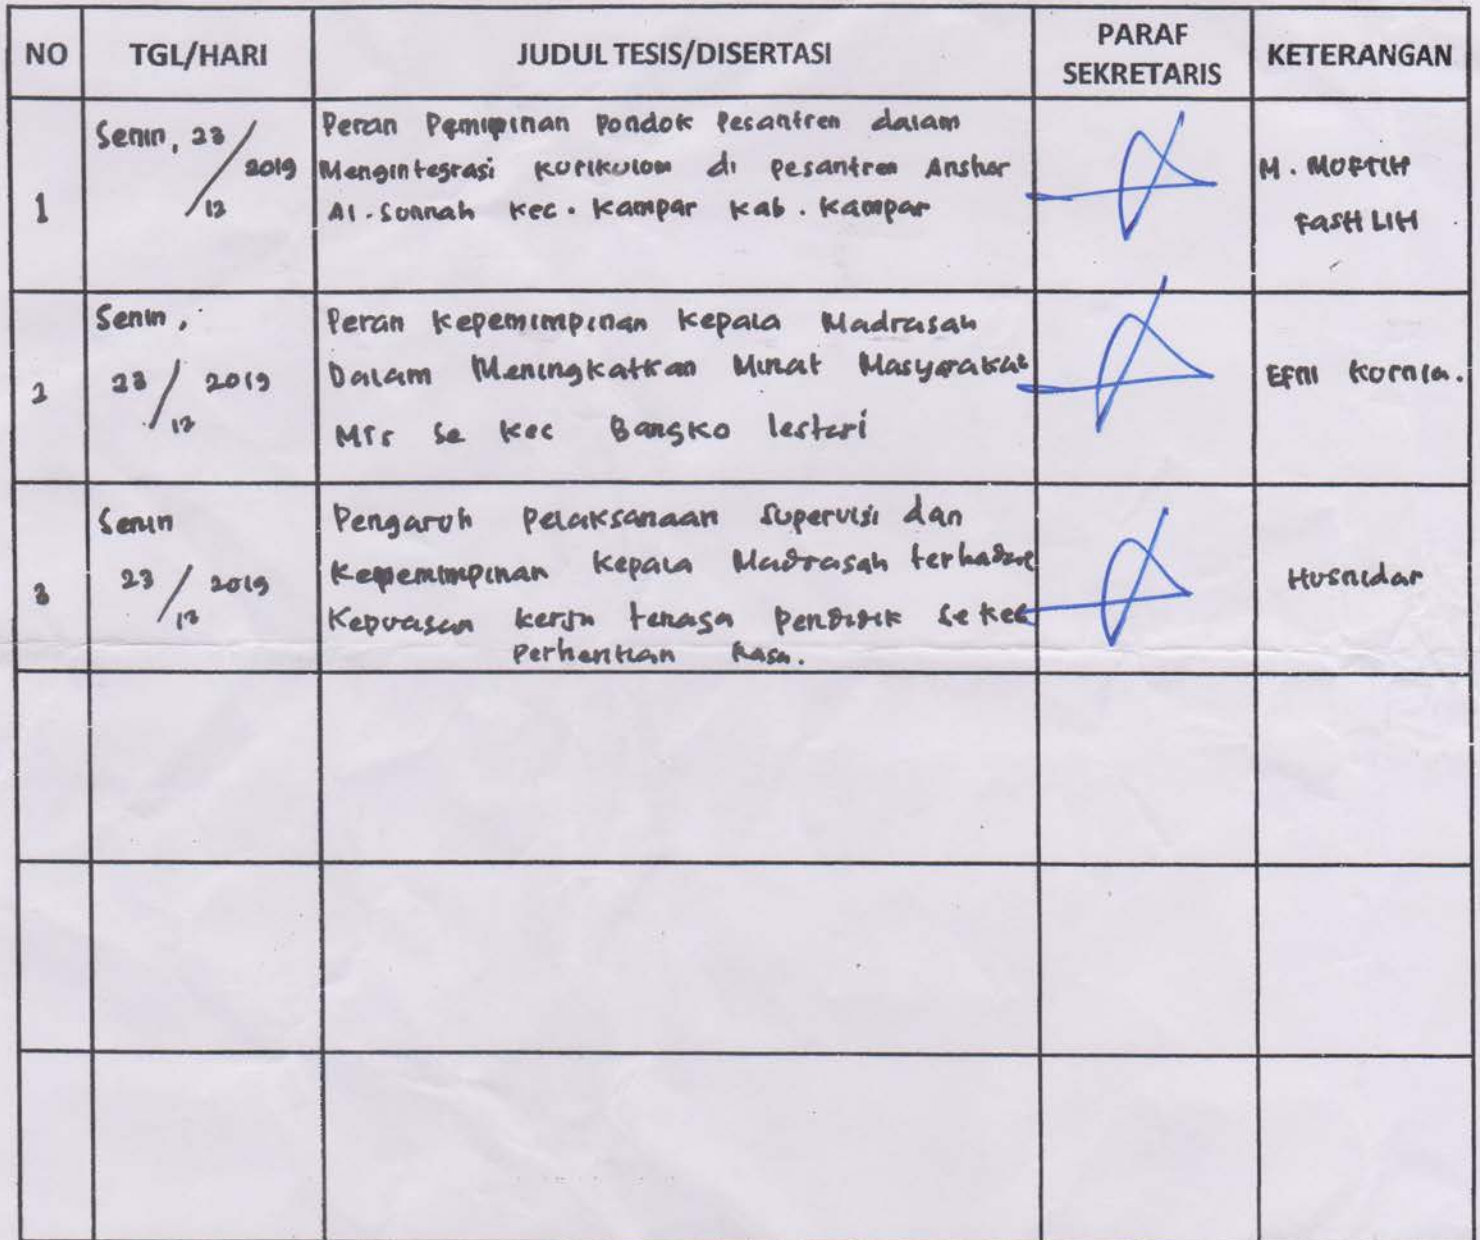 NO TGL/HARI JUDUL TESIS/DISERTASI PARAF SEKRETARIS KETERANGAN
1 Senin, 23/12 2019 Peran Pemipinan Pondok Pesantren dalam
Mengintegrasi Kurikulum di Pesantren Anshar
Al-Sunnah Kec. Kampar Kab. Kampar
M. MUFTIH
FASHLIH
2 Senin, 23/12 2019 Peran Kepemimpinan Kepala Madrasah
Dalam Meningkatkan Minat Masyarakat
MTs Se Kec Bangko lestari
EFNI Kurnia.
3 Senin 23/12 2019 Pengaruh Pelaksanaan Supervisi dan
Kepemimpinan Kepala Madrasah terhadap
Kepuasan kerja tenaga Pendidik Se Kec
Perhentian Rasa.
Husnidar